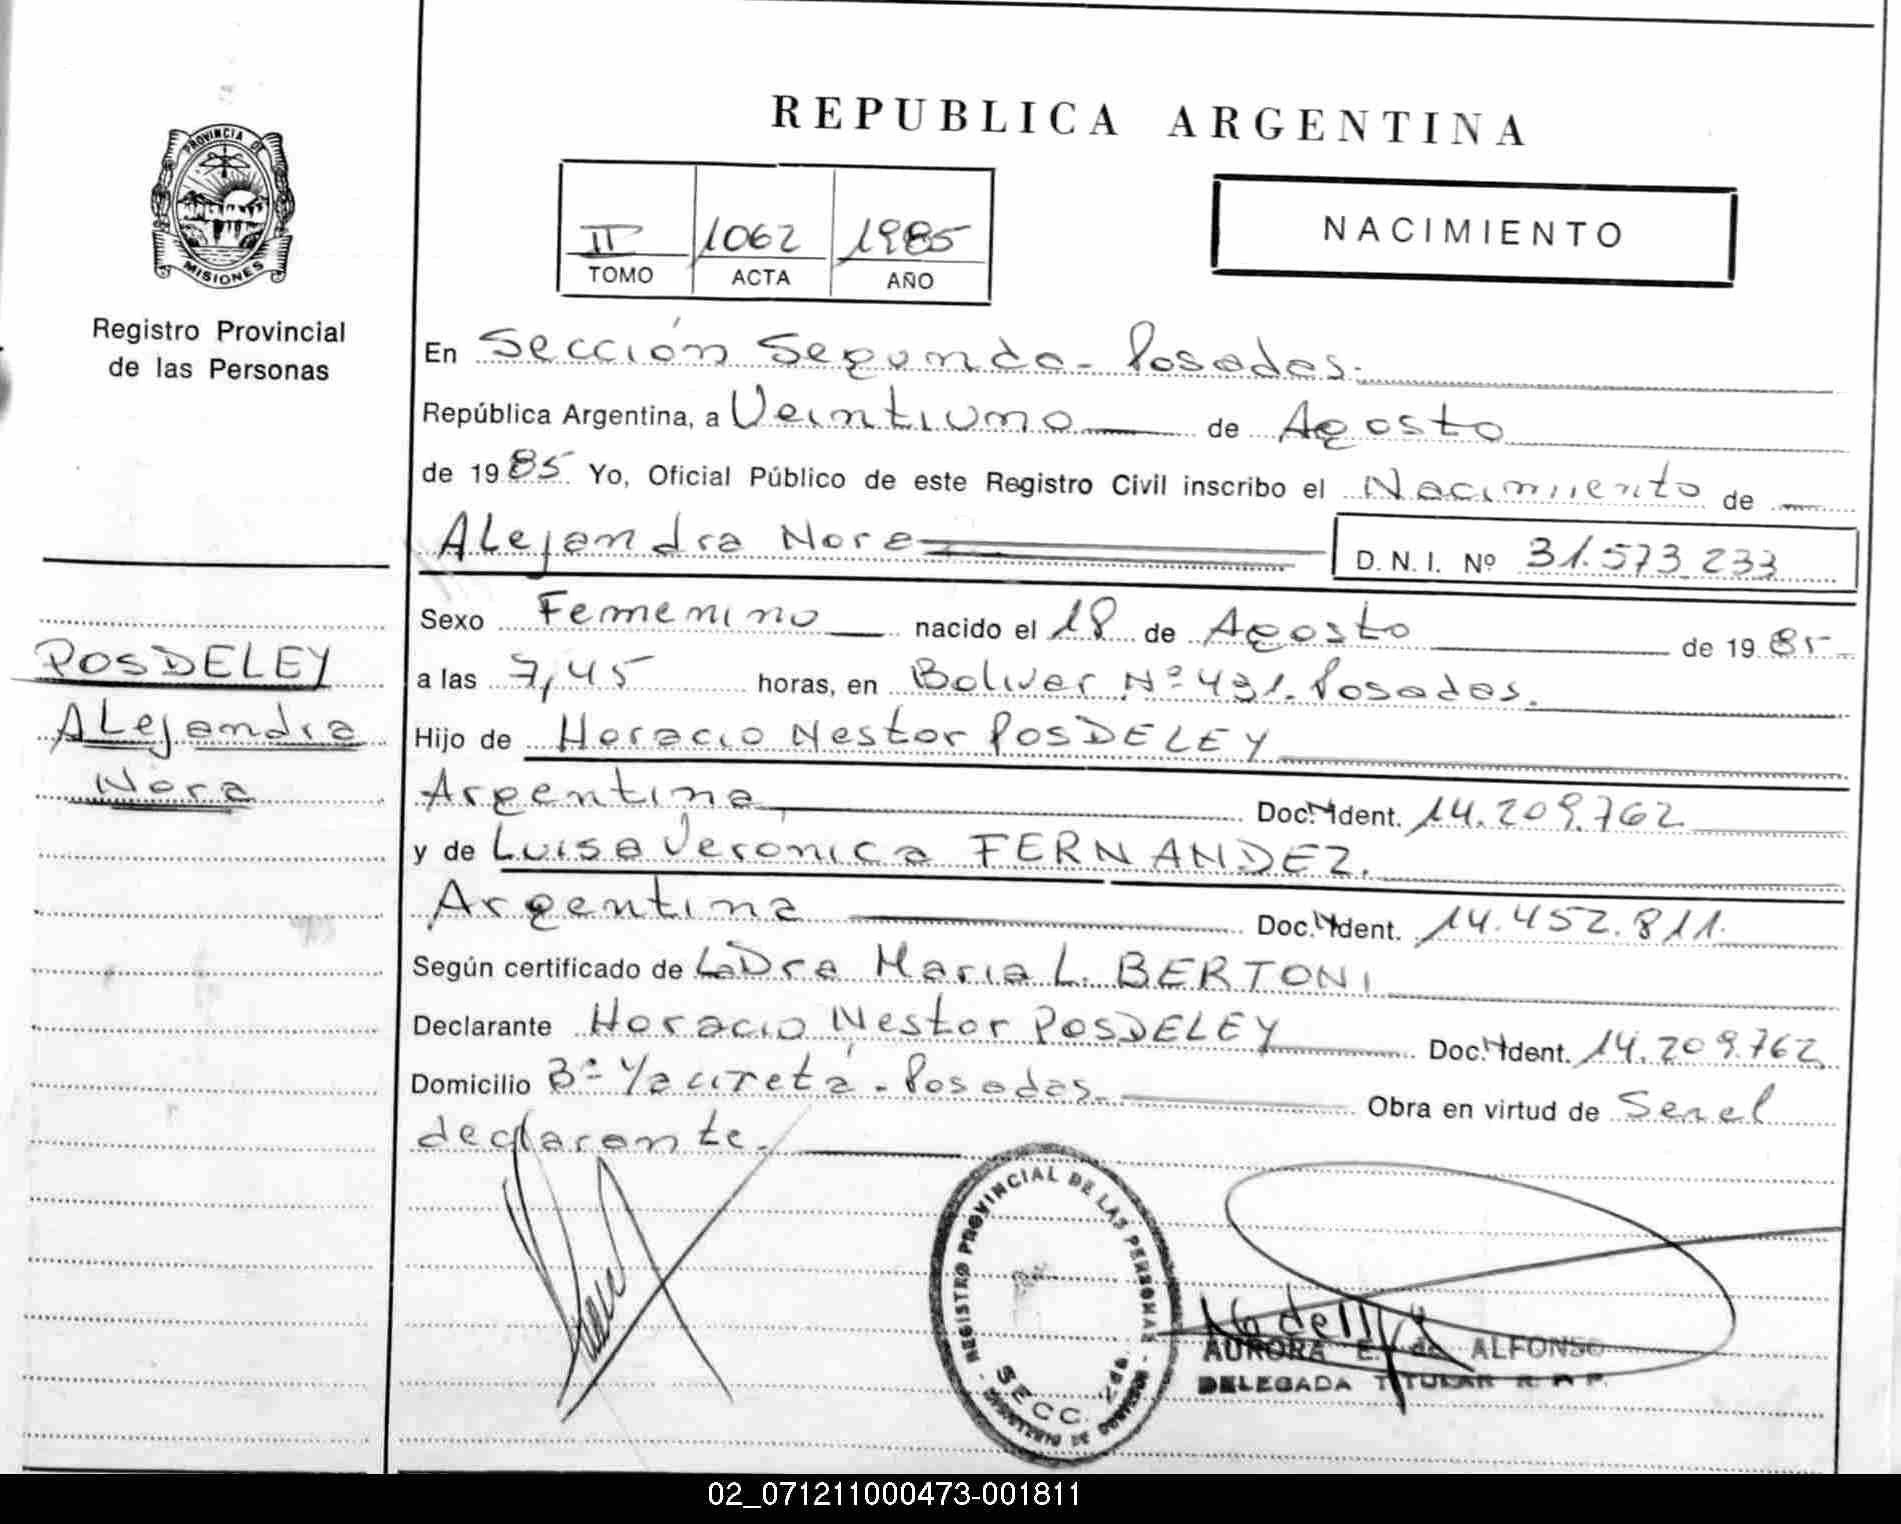 PROVINCIA DE
MISIONES
Registro Provincial
de las Personas
POSDELEY
Alejandra
Nora
REPUBLICA ARGENTINA
II 1062 1985
TOMO ACTA AÑO
NACIMIENTO
En Sección Segunda - Posadas.
República Argentina, a Veintiuno de Agosto
de 1985 Yo, Oficial Público de este Registro Civil inscribo el Nacimiento de
Alejandra Nora D. N. I. Nº 31.573.233
Sexo Femenino nacido el 18 de Agosto de 1985
a las 7,45 horas, en Bolivar Nº 431. Posadas.
Hijo de Horacio Nestor POSDELEY
Argentina Doc. Ident. 14.209.762
y de Luisa Verónica FERNANDEZ.
Argentina Doc. Ident. 14.452.811.
Según certificado de La Dra Maria L. BERTONI
Declarante Horacio Nestor POSDELEY Doc. Ident. 14.209.762
Domicilio Bº Yaciretá - Posadas. Obra en virtud de Ser el
declarante.
REGISTRO PROVINCIAL DE LAS PERSONAS
SECC. 2da.
AURORA E. de ALFONSO
DELEGADA TITULAR R. P. P.
02_071211000473-001811